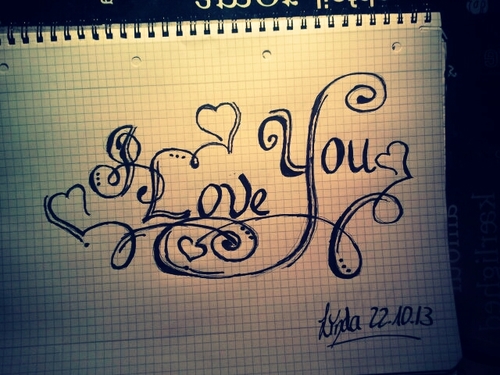 I Love You
Lynda 22.10.13